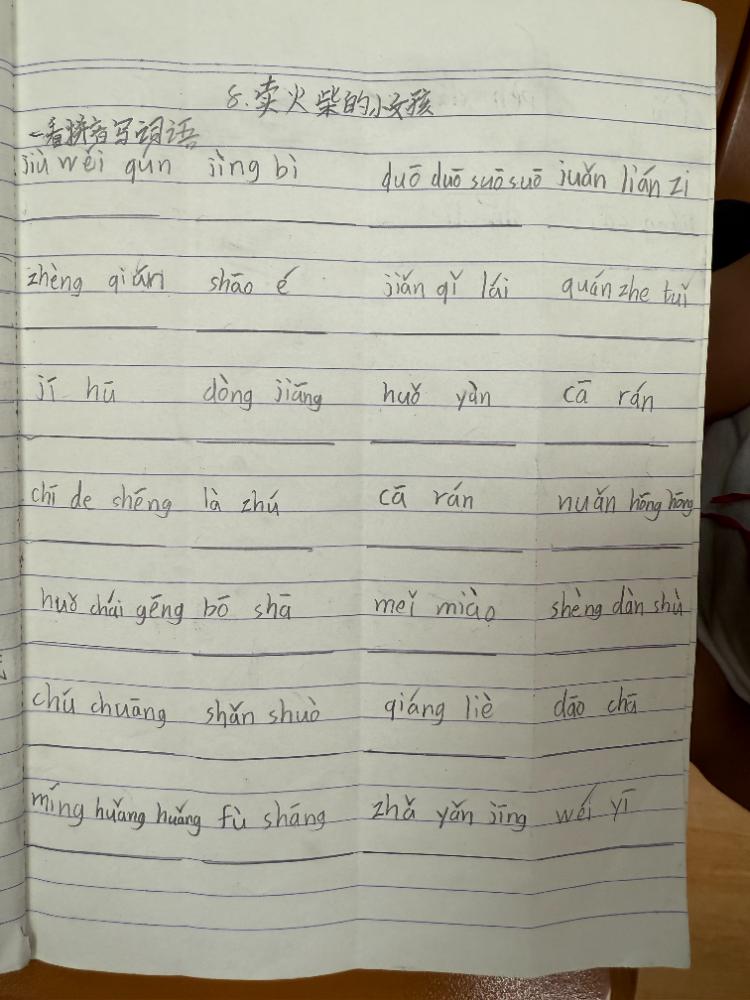 8.卖火柴的小女孩
一看拼音写词语
jiù wéi qún jìng bì duō duō suō suō juǎn lián zi
zhèng qián shāo é jiǎn qǐ lái quán zhe tuǐ
jī hū dòng jiāng huǒ yàn cā rán
chī de shēng là zhú cā rán nuǎn hōng hōng
huǒ chái gěng bō shā měi miào shèng dàn shù
chú chuāng shǎn shuò qiáng liè dāo chā
míng huǎng huǎng fù shāng zhǎ yǎn jīng wéi yī